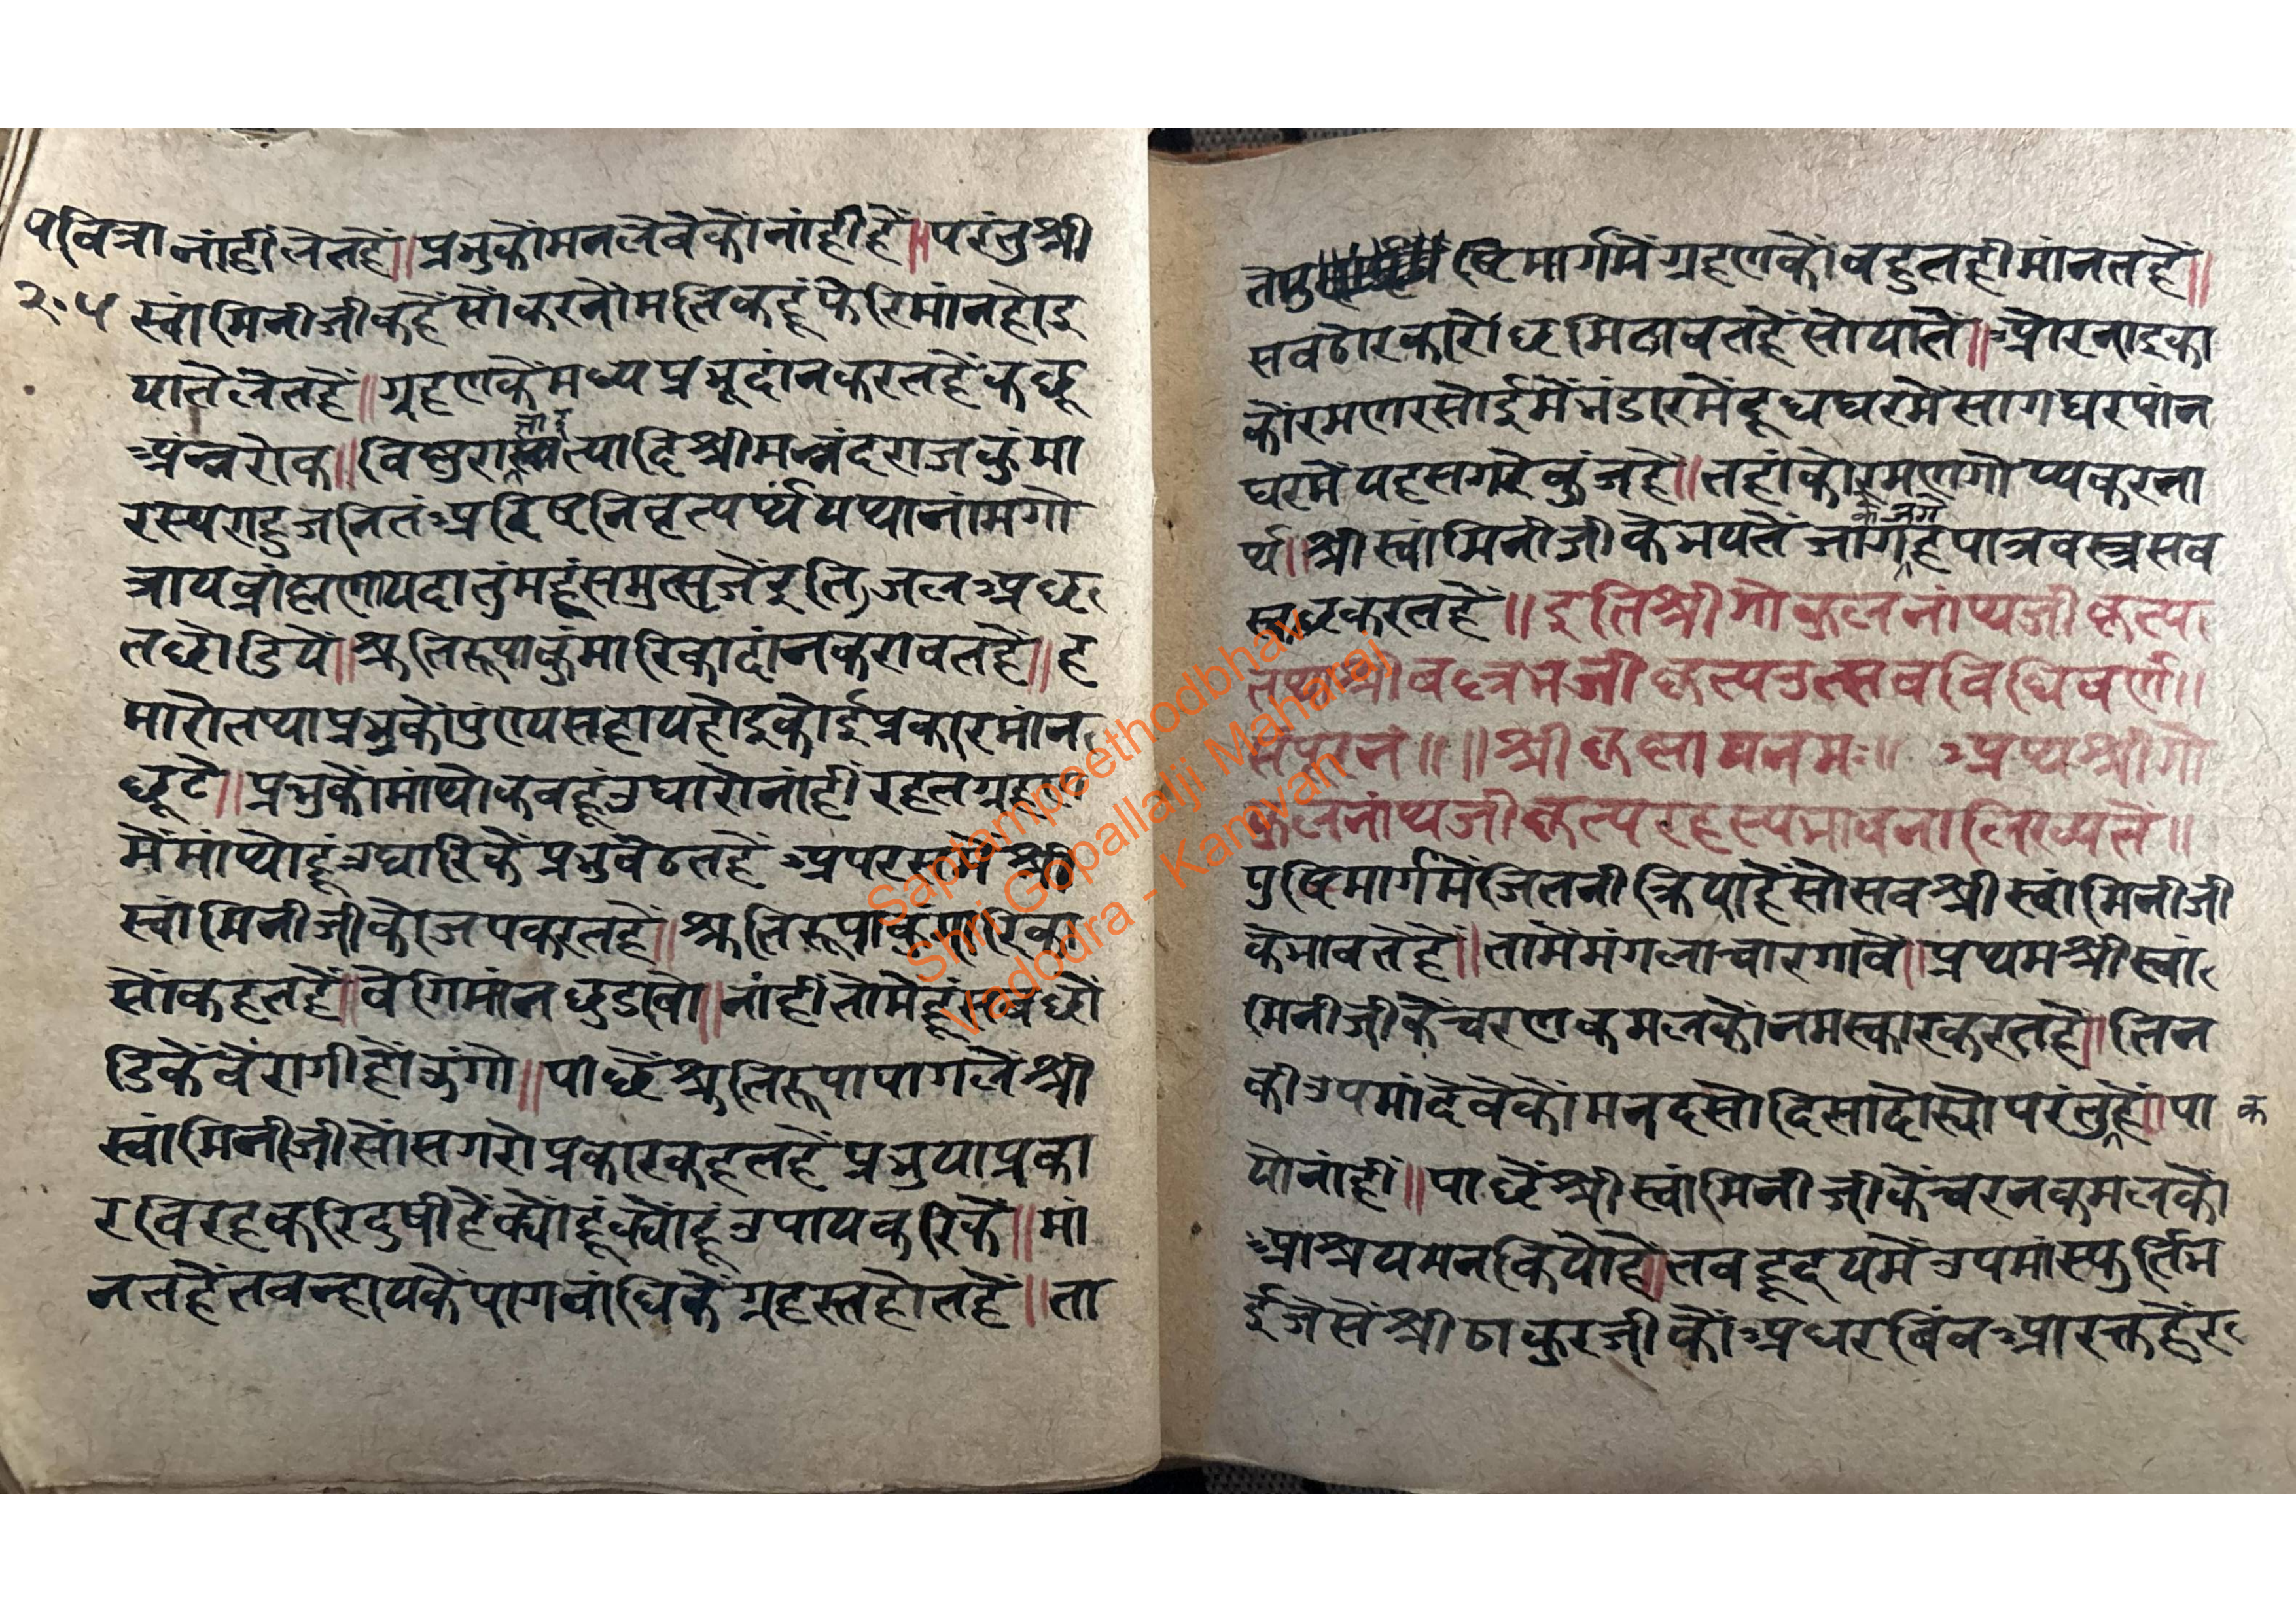 पवित्रा नांहीं लेतहैं॥प्रभुकोंमनलेवेकोंनांहीहैं॥परंतुश्री
२०५ स्वांमिनीजीकहैंसोंकरनोंमतिकहूंफेरिमांनहोइ
यातेंलेतहैं॥ग्रहणकेंमध्यप्रभूदांनकरतहेंकछू
अंन्नरोक॥विष्णुरा त्यादिश्रीमन्नंदराजकुंमा
रस्यराहुजनितंअरिष्टनिवृत्यर्थ्यंयथानांमगो
त्रायब्रांह्मणायदातुंमहंसमुत्सृजेंइतिजलअछ
तछोडियें॥श्रुतिरूपाकुंमारिकादांनकरावतहें॥ह
मारोतथाप्रभुकोंपुंण्यसहायहोइकोईप्रकारमांन
छूटे॥प्रभुकोंमांथोकबहूंउघारोनांहीं रहतग्रहण
मेंमांथोहूंउघारिकेंप्रभुबेठतहें अपरसमेंश्री
स्वांमिनीजीकोजपकरतहें॥श्रुतिरूपाकुंमारिका
सोंकहतहें॥वेगिमांनछुडावो॥नांहींतोमेंहूंसबछो
डिकेंवेंरागीहोंउंगो॥पाछेंश्रुतिरूपापागलेंश्री
स्वांमिनीजीसोंसगरोप्रकारकहतहेंप्रभुयाप्रका
रविरहकरिदुषीहेंक्योंहूंक्योंहूंउपायकरिकें॥मां
नतहेंतबन्हायकेंपागबांधिकेंग्रहस्तहोतहें॥ता
तेंपु ष्टिमार्गमेंग्रहणकोंबहुतहीमांनतहें॥
सबठोरकोरोछमिटावतहेंसोयातें॥ओरनाइका
कोंरमणरसोईमेंभंडारमेंदूधघरमेंसागघरपांन
घरमेंयहसगरेकुंजहें॥तहांकोरमणगोप्यकरना
र्थ॥श्रीस्वांमिनीजीकेभयतेंजागहपात्रवस्त्रसब
के अंगे
स्वछकरतहें॥इतिश्रीगोकुलनांथजीकृत्य
तथाश्री जीकृत्यउत्सवविधिवर्ण॥
संपूरनं॥॥श्रीकृष्णायनमः॥ अथश्रीगो
कुलनांथजीकृत्यरहस्यभावनालिख्यते॥
पुष्टिमार्गमेंजितनीक्रियाहेंसोसबश्रीस्वांमिनीजी
केभावतेंहें॥तामेंमंगलाचारगावे॥प्रथमश्रीस्वां
मिनीजीकेंचरणकमलकोंनमस्कारकरतहें॥तिन
कीउपमांदेवेकोंमनदसोदिसादोस्योपरंतुहें॥पा क
योनांहीं॥पाछेंश्रीस्वांमिनीजीकेंचरनकमलकों
आश्रयमनकियोहे॥तबहृदयमेंउपमांस्फुर्तिभ
ईजेसेंश्रीठाकुरजीकोंअधरबिंबआरक्तहेंर
Saptampeethodbhav
Shri Gopallalji Maharaj
Vadodra - Kamvan